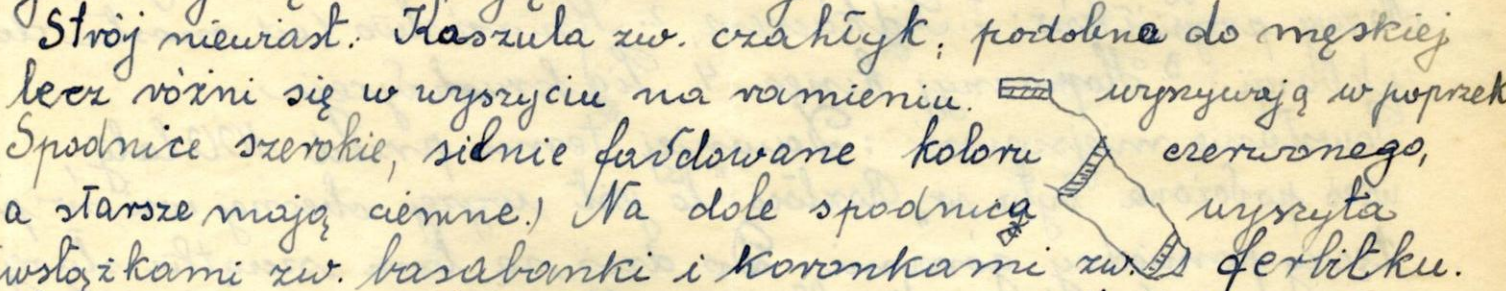 Strój niewiast. Kaszula zw. czahłyk, podobna do męskiej
lecz różni się w wyszyciu na ramieniu. wyszywają w poprzek
Spodnice szerokie, silnie fałdowane koloru czerwonego,
a starsze mają ciemne.) Na dole spodnica wyszyta
wstążkami zw. basabanki i koronkami zw. ferbitku.